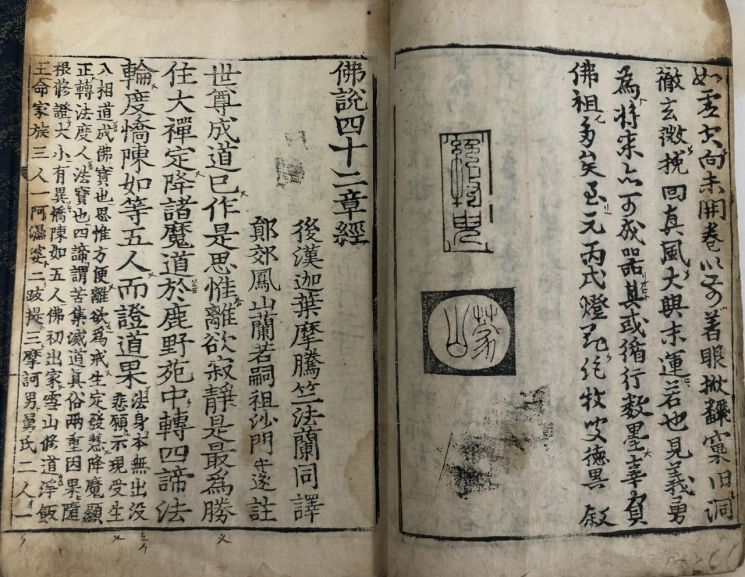 尚未開卷以前着眼掀飜窠旧洞
徹玄微挽回真風大興末運若也見義勇
為將來亦可成器其或循行數墨辜負
佛祖多矣至元丙戌燈節絕牧叟德異 敘
絕牧叟
蒙山
佛說四十二章經
後漢迦葉摩騰竺法蘭同譯
鄭郊鳳山蘭若嗣祖沙門守遂註
世尊成道已作是思惟離欲寂靜是最為勝
住大禪定降諸魔道於鹿野苑中轉四諦法
輪度憍陳如等五人而證道果法身本無出没
悲願示現受生
八相道成佛寶也思惟方便離欲為戒生定發慧降魔顯
正轉法度人法寶也四諦謂苦集滅道真俗兩重因果隨
根修證大小有異憍陳如五人佛初出家雪山修道淨飯
王命家族三人一阿濕婆二跋提三摩訶男舅氏二人一